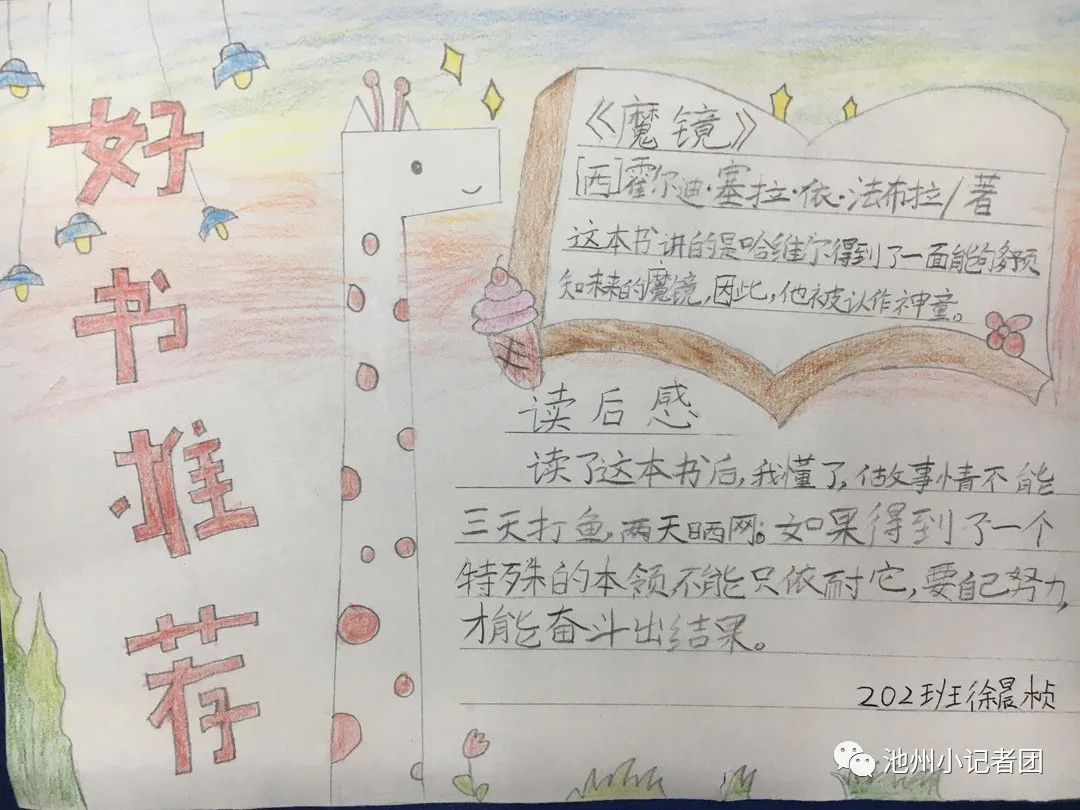 好书推荐
《魔镜》
[西]霍尔迪·塞拉·依·法布拉/著
这本书讲的是哈维尔得到了一面能够预
知未来的魔镜,因此,他被认作神童。
读后感
读了这本书后,我懂了,做故事情不能
三天打鱼,两天晒网。如果得到了一个
特殊的本领不能只依耐它,要自己努力,
才能奋斗出结果。
202班徐晨桢
池州小记者团